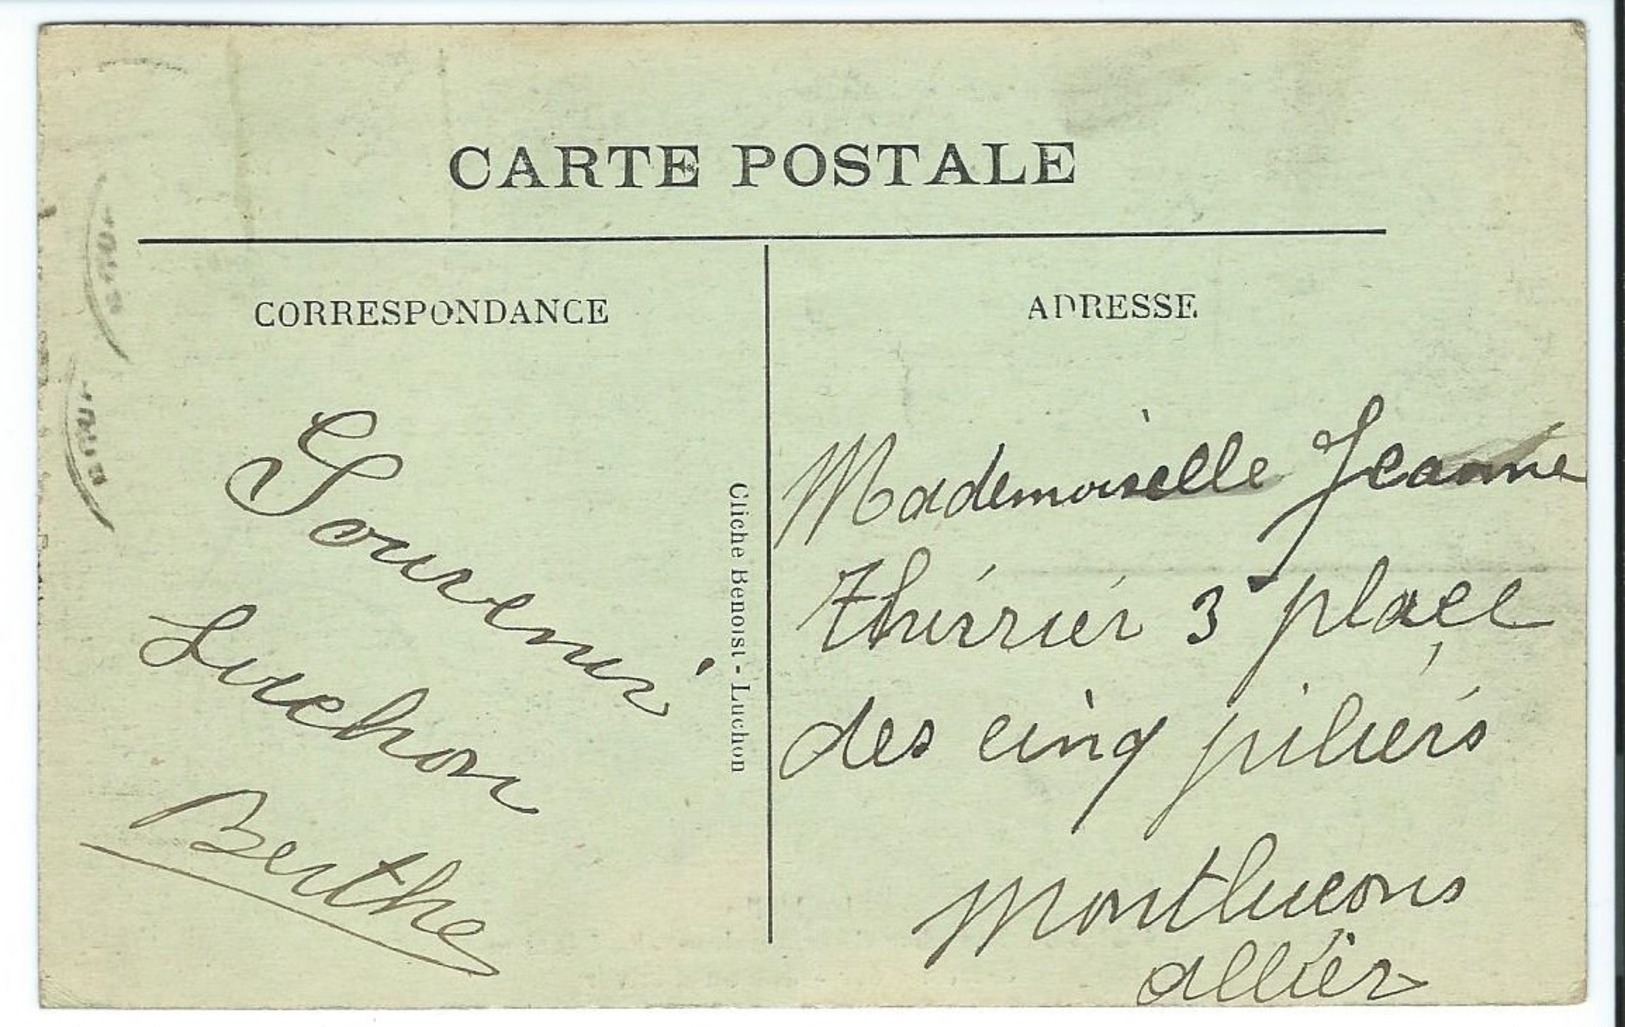 CARTE POSTALE
CORRESPONDANCE
Souvenir
Luchon
Berthe
Cliche Benoist - Luchon
ADRESSE
Mademoiselle Jeanne
Thirrier 3 place
des cinq piliers
Montlucons
allier